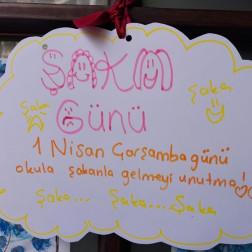 ŞAKA
Şaka
Şaka
Günü
1 Nisan Çarşamba günü
okula şakanla gelmeyi unutma!
Şaka... Şaka... Şaka